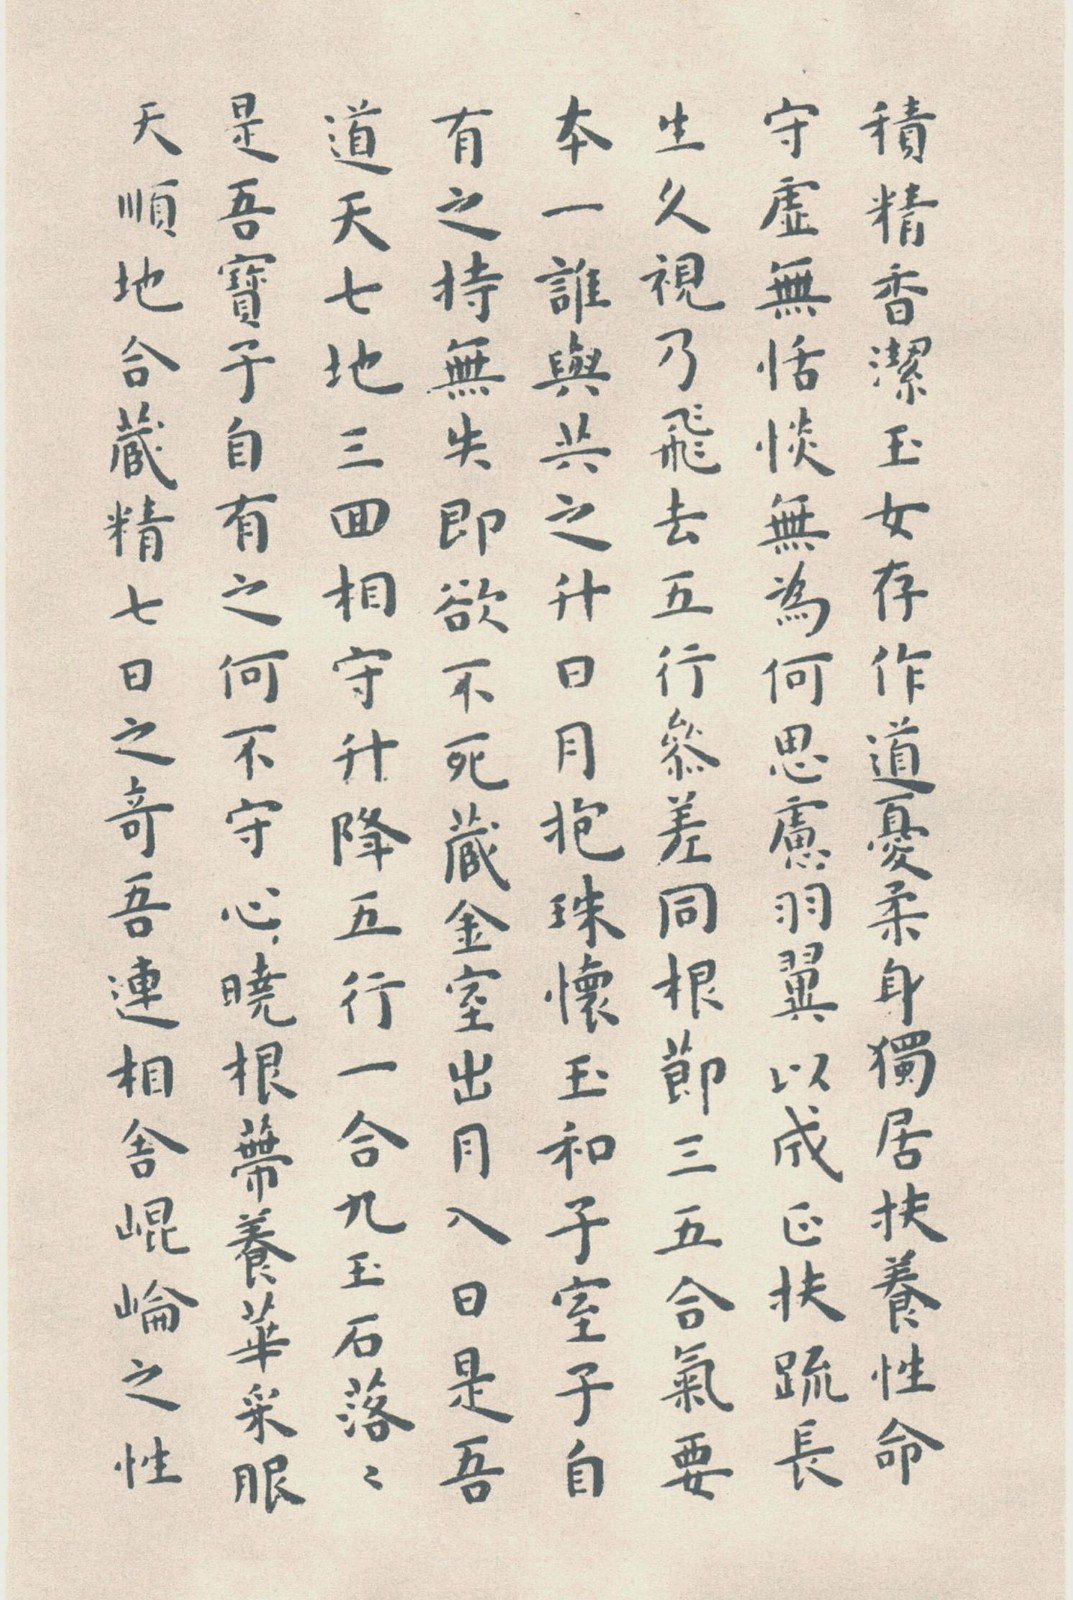 積精香潔玉女存作道憂柔身獨居扶養性命
守虛無恬惔無為何思慮羽翼以成正扶踈長
生久視乃飛去五行叅差同根節三五合氣要
本一誰與共之升日月抱珠懷玉和子室子自
有之持無失即欲不死藏金室出月入日是吾
道天七地三回相守升降五行一合九玉石落〻
是吾寶子自有之何不守心曉根蔕養華采服
天順地合藏精七日之奇吾連相舍崐崘之性